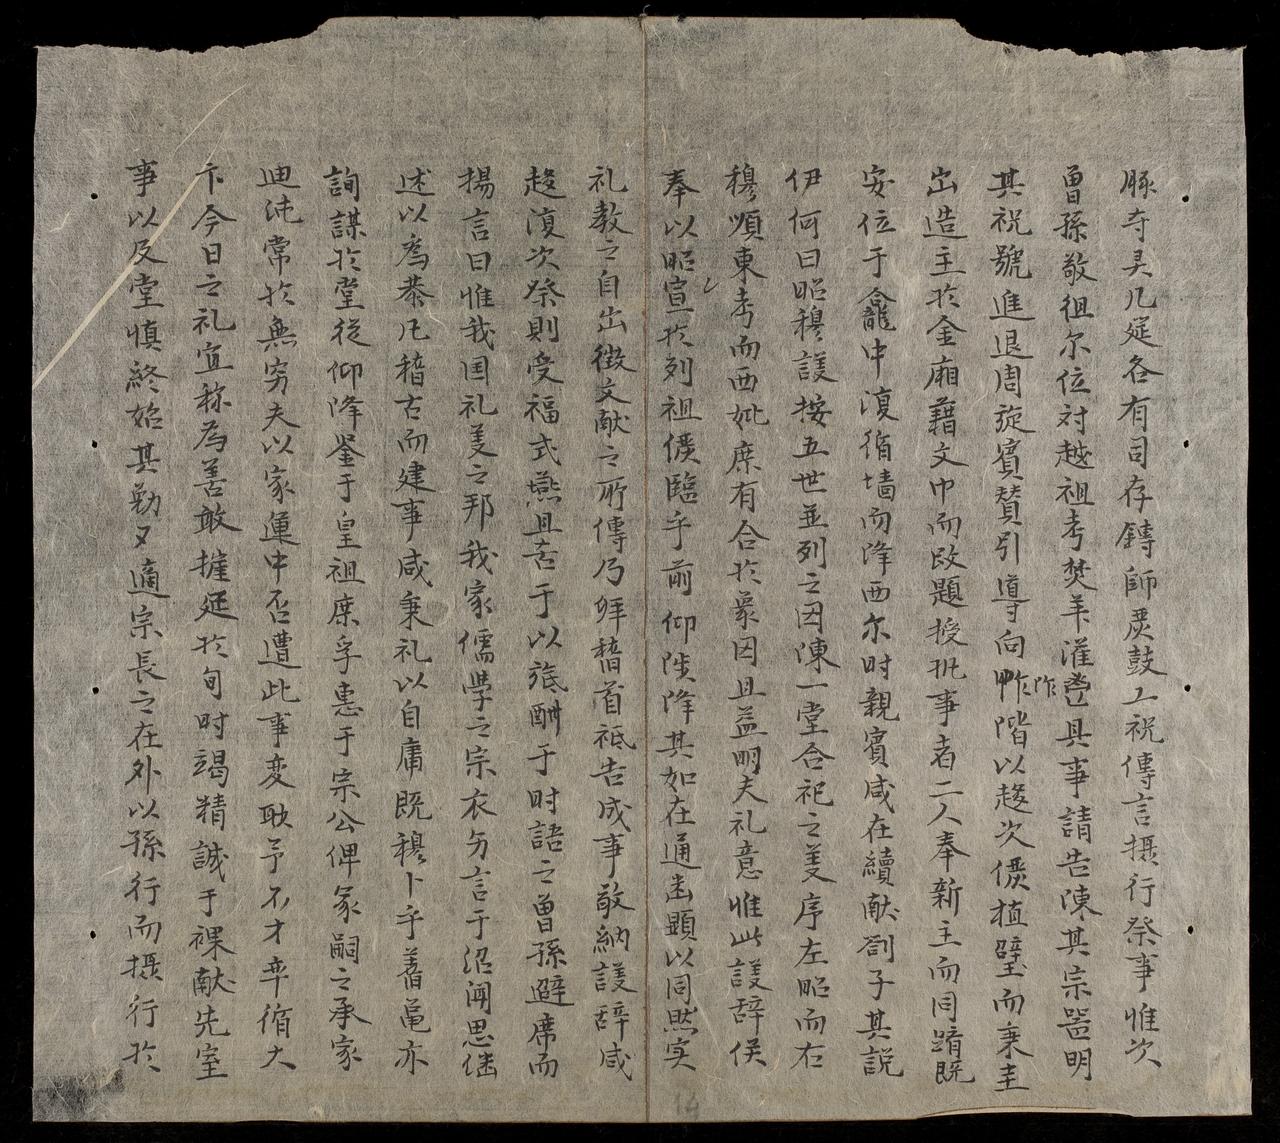 豚奇灵几筵各有司存鑄師戛鼓工祝傳言摂行祭事惟次
曽孫敬徂尔位対越祖考焚羊灌鬯具事請告陳其宗噐明
其祝號進退周旋賓賛引導向阼階以趍次僎植璧而秉圭
出造主扵金廂藉文巾而改題授执事者二人奉新主而同躋既
安位于龕中復循墙而降西尓时親賓咸在續献劄子其説
伊何曰昭穆謹按五世並列之因陳一堂合祀之羙序左昭而右
穆順東考而西妣庶有合扵彖因且益明夫礼意惟此謹辞俟
奉以昭宣扵列祖僾臨乎前仰陟降其如在通幽顕以同然实
礼教之自出徴文献之所傳乃拜稽首祗告成事敢納謹辞咸
趍復次祭則受福式燕且否于以旅酬于时語之曽孫避席而
揚言曰惟我国礼羙之邦我家儒學之宗衣匀言于沼闻思继
述以為恭凡稽古而建事咸秉礼以自庸既穆卜乎蓍龟亦
詢謀扵堂從仰降鉴于皇祖庶孚惠于宗公俾冢嗣之承家
迪沌常扵無穷夫以家運中否遭此事変耿予不才率循大
卞今日之礼宜称為善敢摧延扵旬时竭精誠于祼献先室
事以及堂慎終始其勤又適宗長之在外以孫行而摂行扵
16